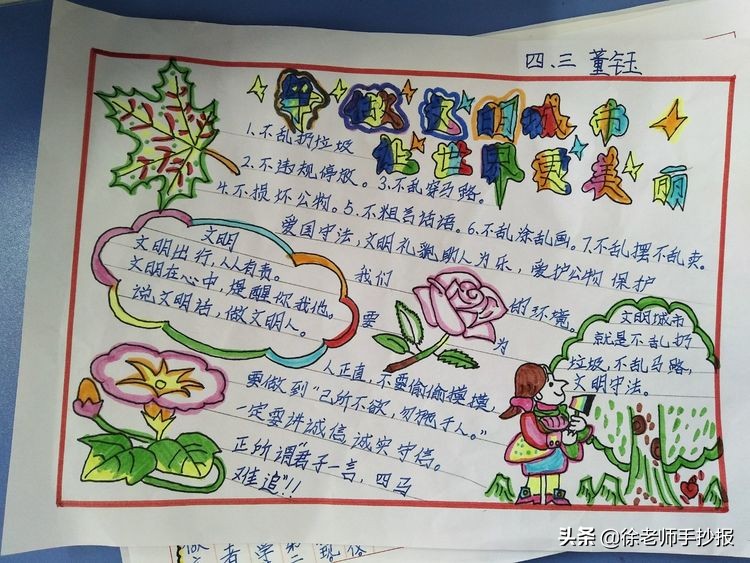 四、三 董钰
争做文明城市
让世界更美丽
1.不乱扔垃圾
2.不违规停放。3.不乱穿马路。
4.不损坏公物。5.不粗言话语。6.不乱涂乱画。7.不乱摆不乱卖。
爱国守法,文明礼貌助人为乐,爱护公物 保护
我们 的环境。
要 为
人正直,不要偷偷摸摸,
要做到"己所不欲,勿施于人。"
一定要讲诚信诚实守信。
正所谓"君子一言,四马
难追"!!
文明
文明出行,人人有责。
文明在心中,提醒你我他。
说文明话,做文明人。
文明城市
就是不乱扔
垃圾,不乱马路,
文明守法。
头条 @徐老师手抄报